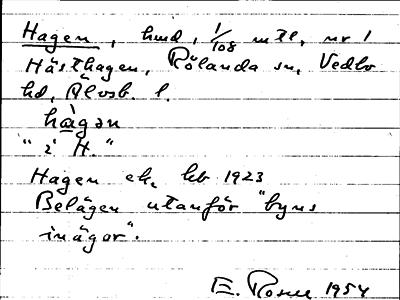 Hagen, hmd, 1/108 mtl, nr 1
Hästhagen, Rölanda sn, Vedbo
hd, Älvsb. l.
hàgən
"i H."
Hagen ek. kb 1923
Belägen utanför "byns
inägor".
E. Rosell 1954